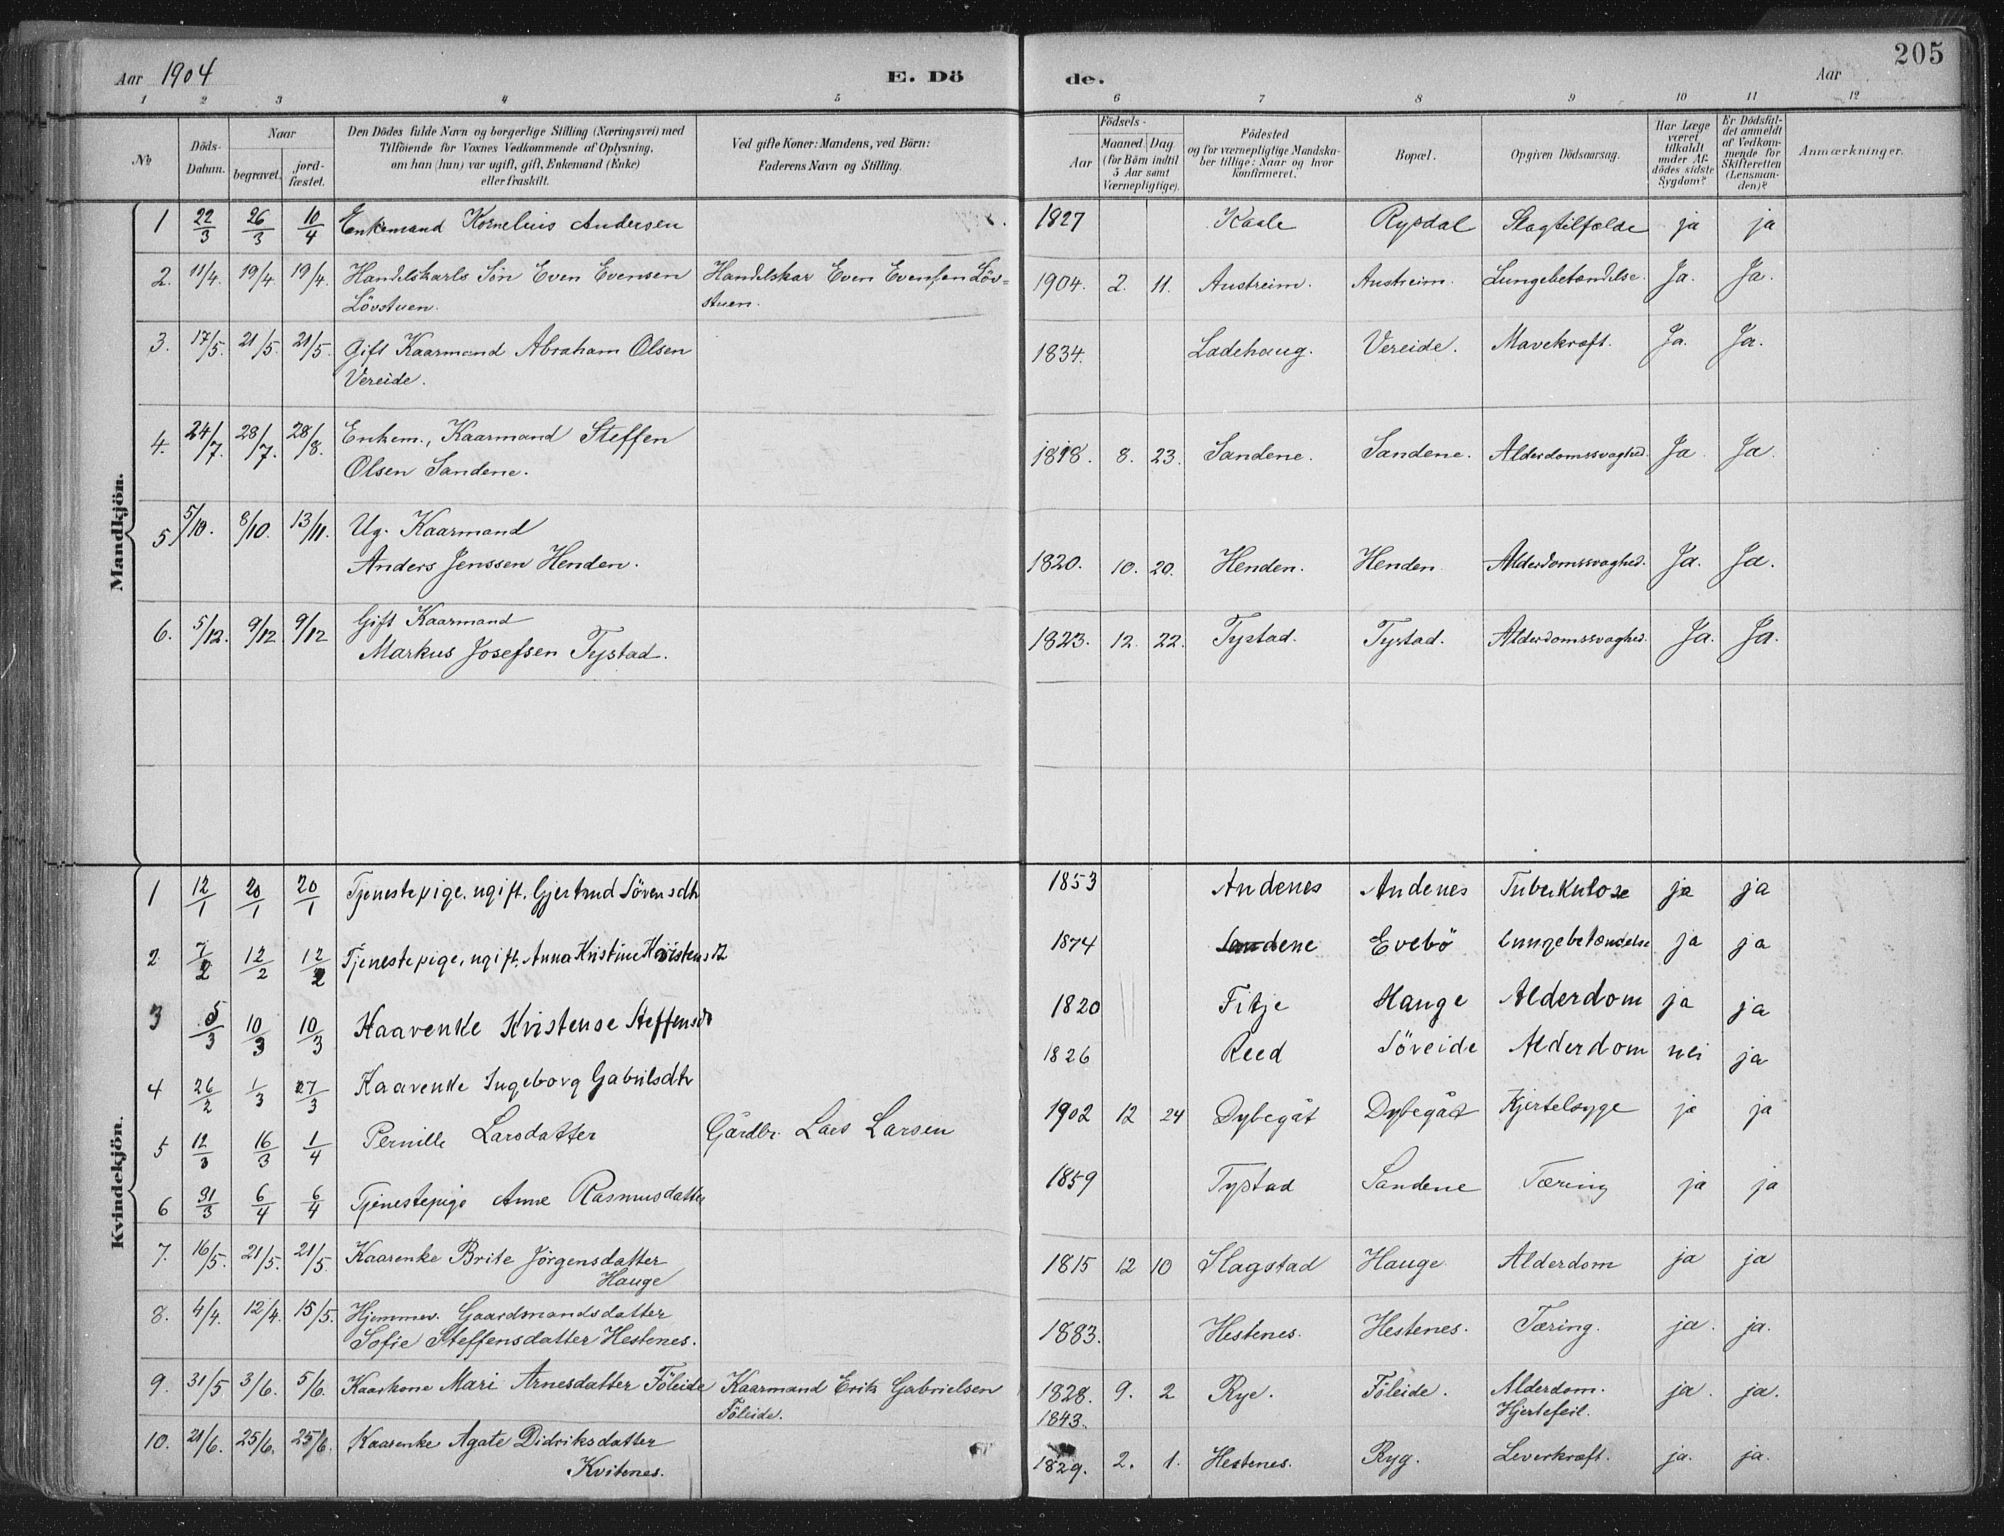 Aar 1904 E. Dö de. Aar 205
1 2 3 4 5 6 7 8 9 10 11 12
No Döds-Datum. Naar begravet. jord-fæstet. Den Dödes fulde Navn og borgerlige Stilling (Næringsvei) med Tilföiende for Voxnes Vedkommende af Oplysning, om han (hun) var ugift, gift, Enkemand (Enke) eller fraskilt. Ved gifte Koner: Mandens, ved Börn: Faderens Navn og Stilling. Födsels- Aar Maaned Dag (for Börn indtil 5 Aar samt Værnepligtige). Födested og for værnepligtige Mandskaber tillige: Naar og hvor konfirmeret. Bopæl. Opgiven Dödsaarsag. Har Læge været tilkaldt under Afdödes sidste Sygdom? Er Dödsfaldet anmeldt af Vedkommende for Skifteretten (Lensmanden)? Anmærkninger.
Mandkjön.
1 22/3 26/3 10/4 Enkemand Kornelius Andersen 1827 Kaale Rypdal Slagtilfælde ja ja
2. 11/4. 19/4 19/4. Handelskarls Sön Even Evensen Handelskar Even Evensen Löv- 1904. 2. 11. Austreim. Austreim. Lungebetændelse. Ja. Ja.
Lövstuen. stuen.
3. 17/5. 21/5. 21/5. Gift Kaarmand Abraham Olsen 1834. Ladehaug. Vereide. Mavekræft. Ja. Ja.
Vereide.
4. 24/7. 28/7. 28/8. Enkem., Kaarmand Steffen
Olsen Sandene. 1818. 8. 23. Sandene. Sandene. Alderdomssvaghed. Ja. Ja.
5 5/10. 8/10. 13/11. Ug. Kaarmand
Anders Jenssen Henden. 1820. 10. 20. Henden. Henden. Alderdomssvaghed. Ja. Ja.
6. 5/12. 9/12 9/12 Gift Kaarmand
Markus Josefsen Tystad. 1823. 12. 22. Tystad. Tystad. Alderdomssvaghed. Ja. Ja.
Kvindekjön.
1 12/1 20/1 20/1 Tjenestepige, ugift. Gjertrud Sörensdtr 1853 Andenes Andenes Tuberkulose ja ja
2 7/2 12/2 12/2 Tjenestepige, ugift. Anna Kristine Kristensdt 1874 Sandene Evebö Lungebetændelse ja ja
3 5/3 10/3 10/3 Kaarenke Kristense Steffensd 1820 Fitje Hauge Alderdom ja ja
4 26/2 1/3 27/3 Kaarenke Ingeborg Gabrilsdtr 1826 Reed Söreide Alderdom nei ja
5 12/3 16/3 1/4 Pernille Larsdatter Gårdbr. Lars Larsen 1902 12 24 Dybegåt Dybegåt Kjertelsyge ja ja
6 31/3 6/4 6/4 Tjenestepige Anne Rasmusdatter 1859 Tystad Sandene Tæring ja ja
7. 16/5. 21/5. 21/5. Kaarenke Brite Jörgensdatter 1815 12 10 Slagstad Hauge Alderdom ja ja
Hauge
8. 4/4. 12/4. 15/5. Hjemmev. Gaardmandsdatter
Sofie Steffensdatter Hestenes. 1883. Hestenes. Hestenes. Tæring. ja. ja.
9. 31/5. 3/6. 5/6. Kaarkone Mari Arnesdatter Föleide Kaarmand Erik Gabrielsen 1828. 9. 2 Rye. Föleide. Alderdom. ja. ja.
Föleide. 1843. Hjertefeil.
10. 21/6. 25/6. 25/6. Kaarenke Agate Didriksdatter 1829. 2. 1. Hestenes. Ryg. Leverkræft. ja. ja.
Kvitenes.